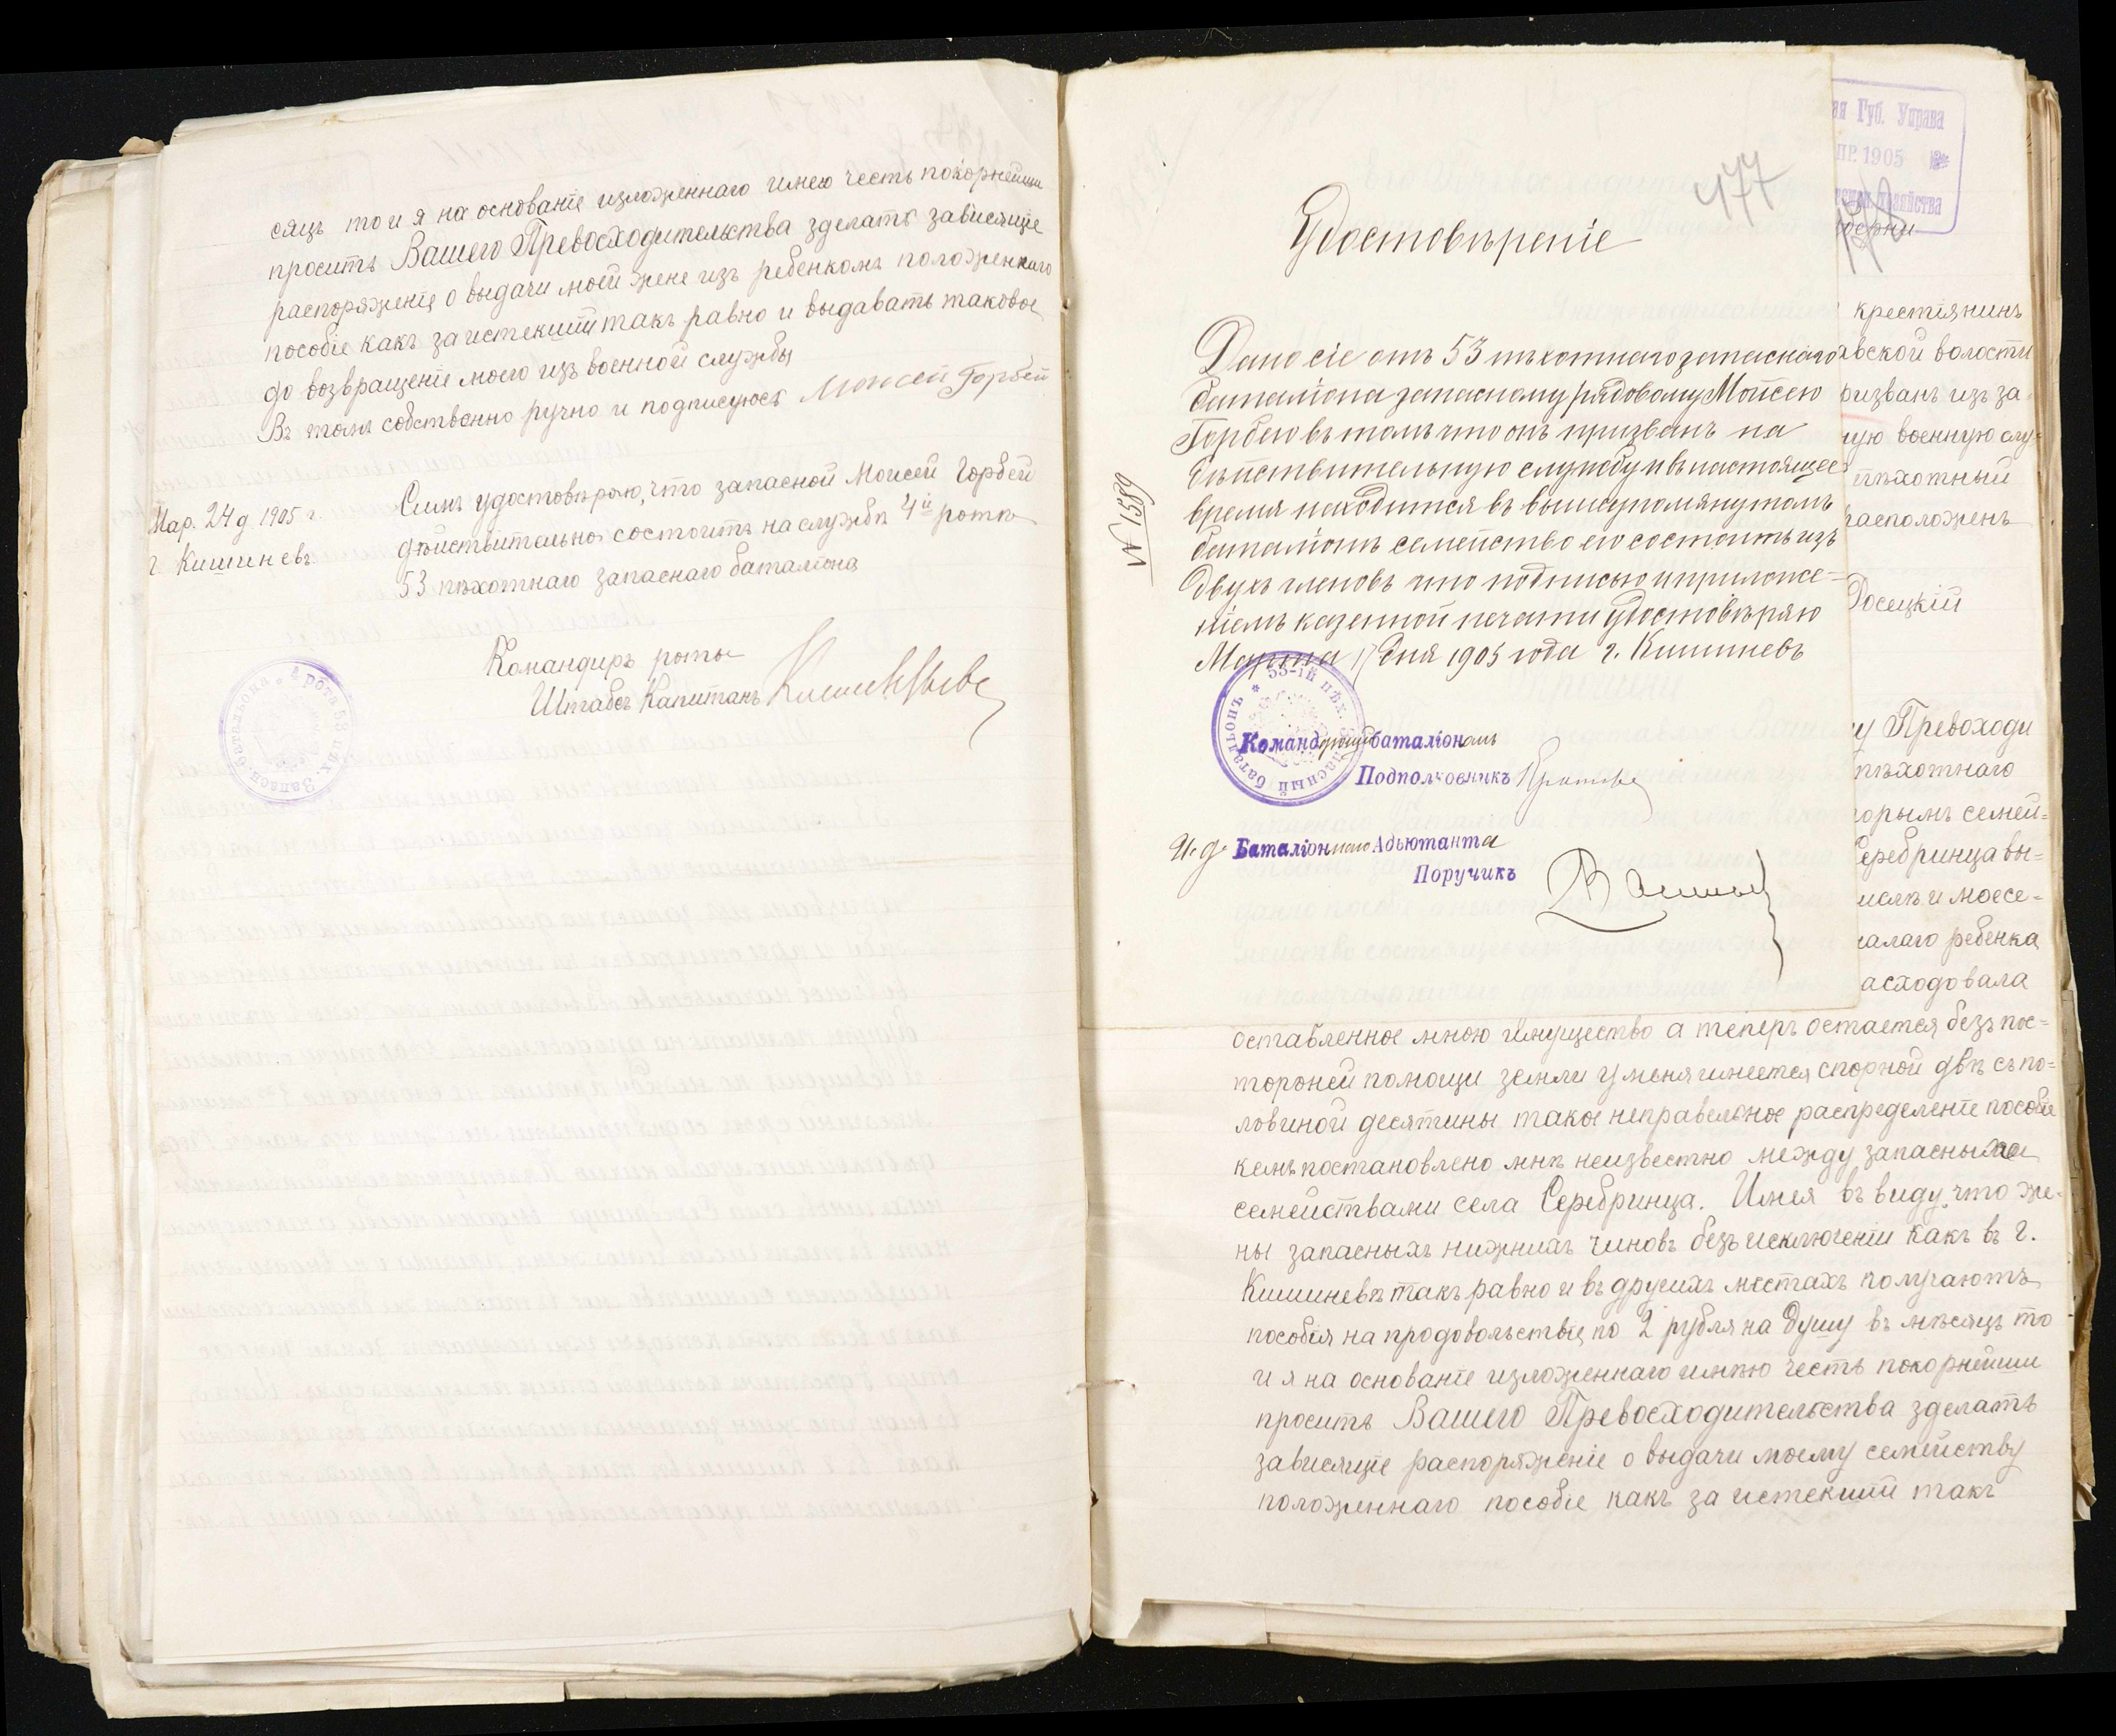 сяцъ то и я на основаніе изложеннаго имею честь покорнейши
просить Вашего Превосходительства зделать зависящіе
распоряженіе о выдачи моей жене изъ ребенкомъ положеннаго
пособіе какъ за истекшій такъ равно и выдавать таковое
до возвращеніе моего изъ военной службы
Въ томъ собственно ручно и подписуюсъ Моисей Горбей
Мар. 24 д 1905 г.
г. Кишиневъ
Симъ удостовѣряю, что запасной Моисей Горбей
дѣйствительно состоитъ на службѣ 4й роты
53 пѣхотнаго запаснаго баталіона
Командиръ роты
Штабсъ Капитанъ
4 рота 53 пѣх. Запасн. баталіона
477
Удостовѣреніе
Дано сіе отъ 53 пѣхотнаго запаснаго
баталіона запасному рядовому Мойсею
Горбею въ томъ что онъ призванъ на
дѣйствительную службу и въ настоящее
время находится въ вышеупомянутомъ
баталіонѣ семейство его состоитъ изъ
двухъ членовъ что подписью и приложе=
ніемъ казенной печати удостовѣряю
Марта 17 дня 1905 года г. Кишиневъ
№ 1589
53-ій пѣх. запасный баталіонъ
Командующій баталіономъ
Подполковникъ
И. д. Баталіоннаго Адъютанта
Поручикъ
ая Губ. Управа
ПР. 1905
крестіянинъ
вской волости
ризванъ изъ за-
ную военную слу=
пѣхотный
расположенъ
Досецкій
у Превоходи
пѣхотнаго
торымъ семей=
Серебринца вы=
и моесе-
малаго ребенка
асходовала
оставленное мною имущество а теперъ остается безъ пос=
тороней помощи земли у меня имеется спорной двѣ съ по=
ловиной десятины такое неправельное распределеніе пособіе
кемъ постановлено мнѣ неизвестно между запасными
семействами села Серебринца. Имея въ виду что же-
ны запасныхъ нижнихъ чиновъ безъ исключеніи какъ въ г.
Кишиневѣ такъ равно и въ другихъ местахъ получаютъ
пособія на продовольствіе по 2 рубля на душу въ мѣсяцъ то
и я на основаніе изложеннаго имѣю честь покорнейши
просить Вашего Превосходительства зделать
зависящіе распоряженіе о выдачи моему семейству
положеннаго пособіе какъ за истекшій такъ